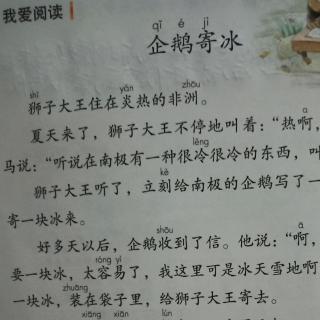 我爱阅读
qǐ é jì
企鹅寄冰
shī yán zhōu
狮子大王住在炎热的非洲。
ā
夏天来了，狮子大王不停地叫着：“热啊，
lěng
马说：“听说在南极有一种很冷很冷的东西，叫
kè
狮子大王听了，立刻给南极的企鹅写了一
寄一块冰来。
shōu ā
好多天以后，企鹅收到了信。他说：“啊，
róng yì
要一块冰，太容易了，我这里可是冰天雪地啊
zhuāng
一块冰，装在袋子里，给狮子大王寄去。
xiāng xiān lún